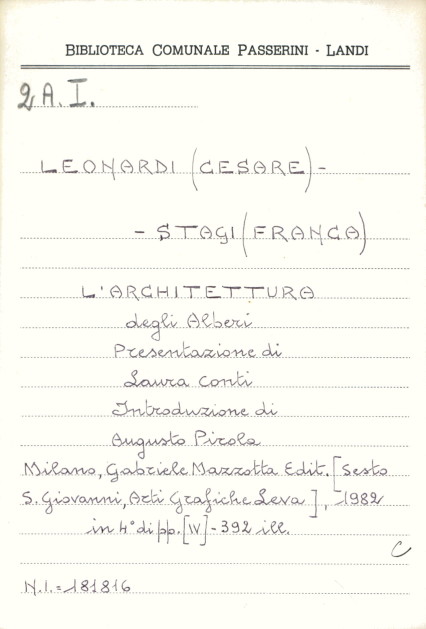 BIBLIOTECA COMUNALE PASSERINI - LANDI
2 A. I.
LEONARDI (CESARE) -
- STAGI (FRANCA)
L'ARCHITETTURA
degli Alberi
Presentazione di
Laura Conti
Introduzione di
Augusto Pirola
Milano, Gabriele Mazzotta Edit. [Sesto
S. Giovanni, Arti Grafiche Leva], 1982
in 4° di pp. [IV] - 392 ill.
C
N.I. = 181816